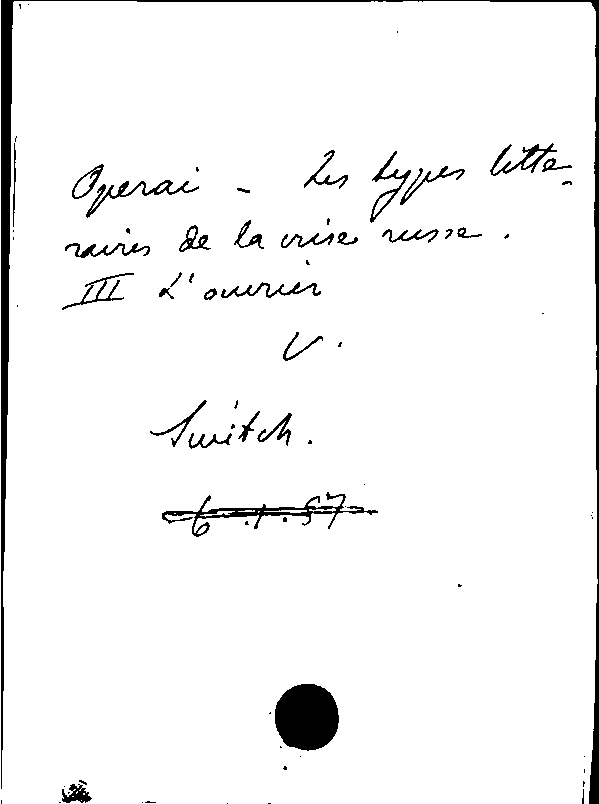 Operai - Les types litte-
raires de la crise russe.
III L'ouvrier
V.
Switch.
6.1.57